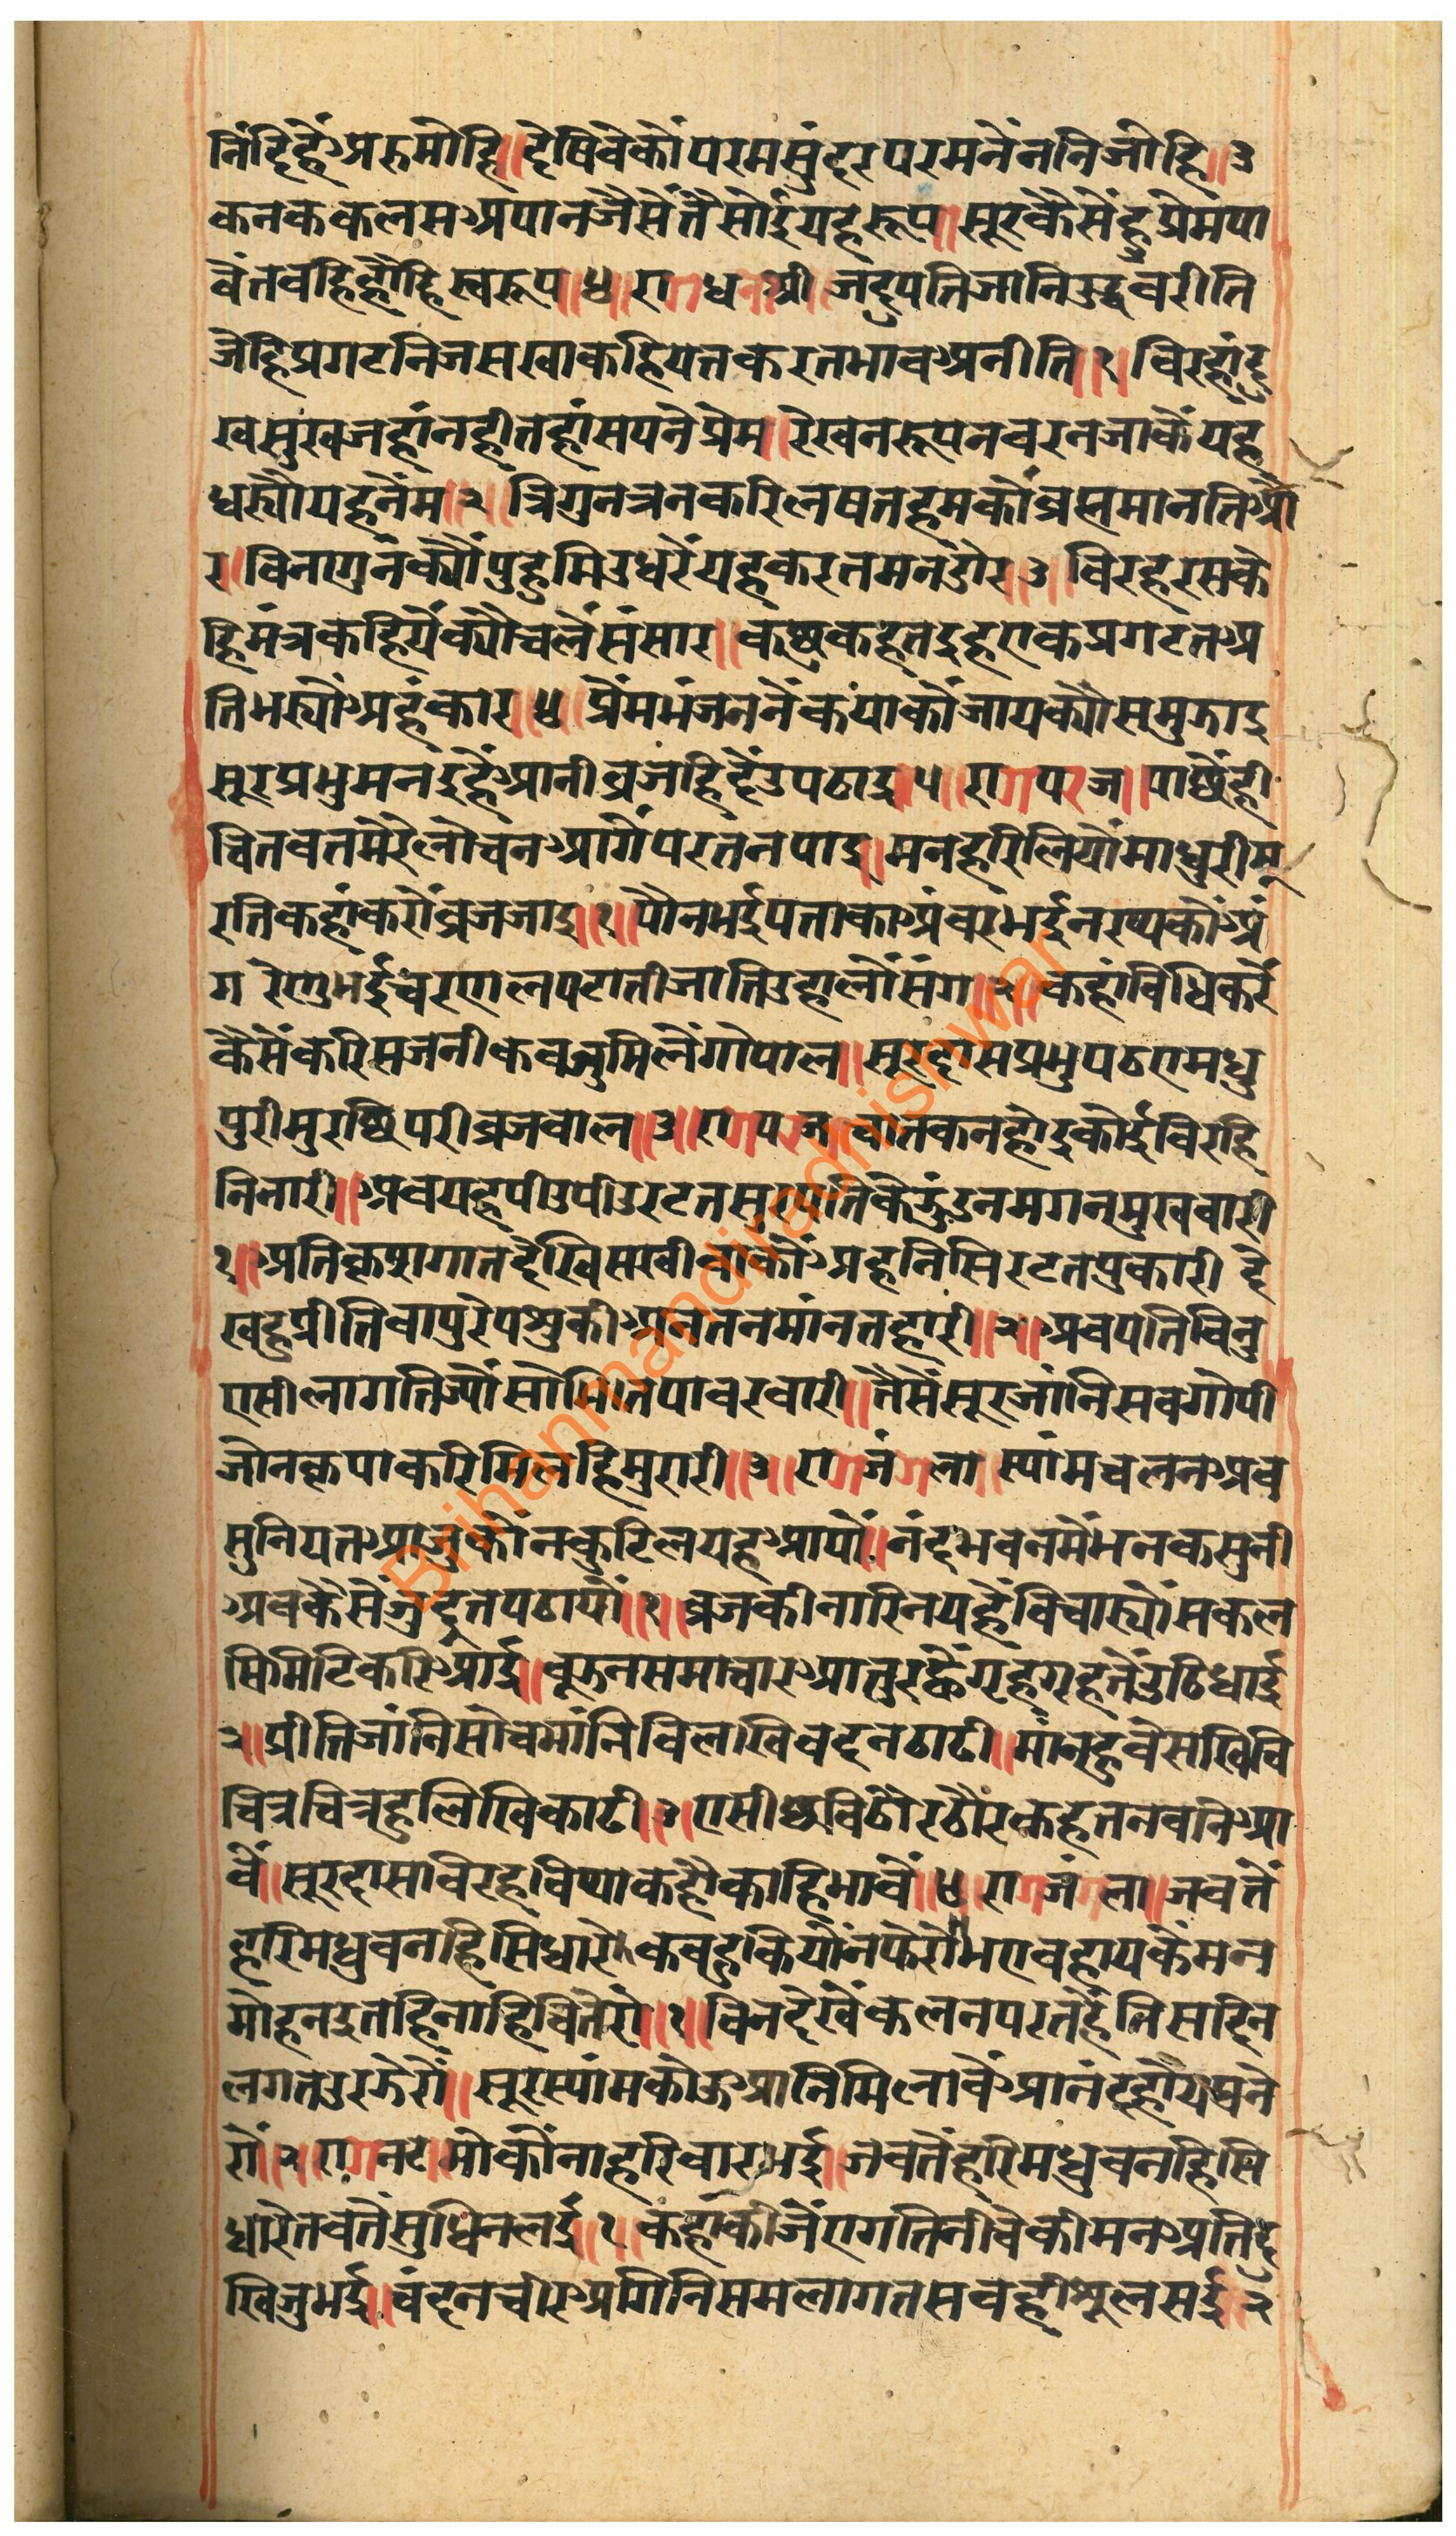 निंदिहैंअरुमोहि॥देषिवेकौंपरमसुंदरपरमनैंननिजोहि॥३
कनककलसअपानजैसेंतैसोईयहरूप॥सूरकैसेंहुप्रेमपा
वैंतवहिहोहिस्वरूप॥४॥रागधनाश्री॥जदुपतिजानिउद्धवरीति
जेहिप्रगटनिजसखाकहियेतकरतभावअनीति॥१॥विरहदु
खसुखजहांनहीतहांसपनेप्रेम॥रेखनरूपनवरनजाकैंयह
धर्योयहनेम॥२॥त्रिगुनत्रनकरिलषतहमकौंव्रह्ममानतिऔ
र॥विनागुनक्यौंपुहुमिउधरेंयहकरतमनडौर॥३॥विरहरसके
हिमंत्रकहियेंक्यौचलेंसंसार॥कछुकहतइहएकप्रगटतअ
तिभर्योअहंकार॥४॥प्रेंमभंजननेंकयाकौंजायक्यौसमुझाइ
सूरप्रभुमनइहैंआनीव्रजहिदैंउपठाइ॥५॥रागपरज॥पाछेंही
चितवतमेरेलोचनआगेंपरतनपाइ॥मनहरिलियोंमाधुरीमू
रतिकहांकरौंव्रजजाइ॥१॥पौनभईपताकाअंवरभईनरथकौंअं
गरेणुभईचरणलपटातीजातिउहालौंसंग॥२॥कहांविधिकरें
कैसेंकरिसजनीकवजुमिलेंगोपाल॥सूरदासप्रभुपठएमधु
पुरीमुरछिपरीव्रजवाल॥३॥रागपरज॥चातकनहोइकोईविरहि
निनारी॥अवयहपीउपीउरटतसुरातिकेझुंडनमगनमुखवारी
१॥अतिकृषगातदेखिसखीवाकौंअहनिसिरटतपुकारी दे
खहुप्रीतिवापुरेपशुकीआनतनमांनतहारी॥२॥अवपतिविनु
एसीलागतिज्यौंसोभितपावरवारी॥तैसेंसूरजांनिसवगोपी
जोनकृपाकरिमिलहिमुरारी॥३॥रागजंगला॥स्यांमचलनअव
सुनियतआजुकौंनकुटिलयहआयौ॥नंदभवनमेंभनकसुनी
अवकैसेंजुदूतपठायौ॥१॥व्रजकीनारिनयहैविचार्योसकल
सिमिटिकरिआई॥वूझनसमाचारआतुरह्वैगृहगृहतेंउठिधाई
२॥प्रीतिजांनिसोचमांनिविलखिवदनठाढी॥मांनहुवेसखिवि
चित्रचित्रहुलिखिकाढी॥३॥एसीछविठौरठौरकहतनवनिआ
वै॥सूरदासविरहविथाकहौकाहिभावैं॥४॥रागजंगला॥जवतें
हरिमधुवनहिसिधारे॥कवहुकियौंनफेरौभएवहायकेंमन
मोहनइतहिनाहिचितेरौ॥१॥विनदेखेंकलनपरतहैंनिसदिन
लगतउरझेरौं॥सूरस्यांमकोऊआनिमिलावैंप्रानंरहौयघने
रौं॥२॥रागनट॥मोकौंनाहरिवारभई॥जवतेंहरिमधुवनहिसि
धारेतवतेंसुधिनलई॥१॥कहांकीजेंएगतिनीवेकीमनअतिदु
खिजुभई॥चंदनचीरअगिनिसमलागतसवहीशूलसई॥२